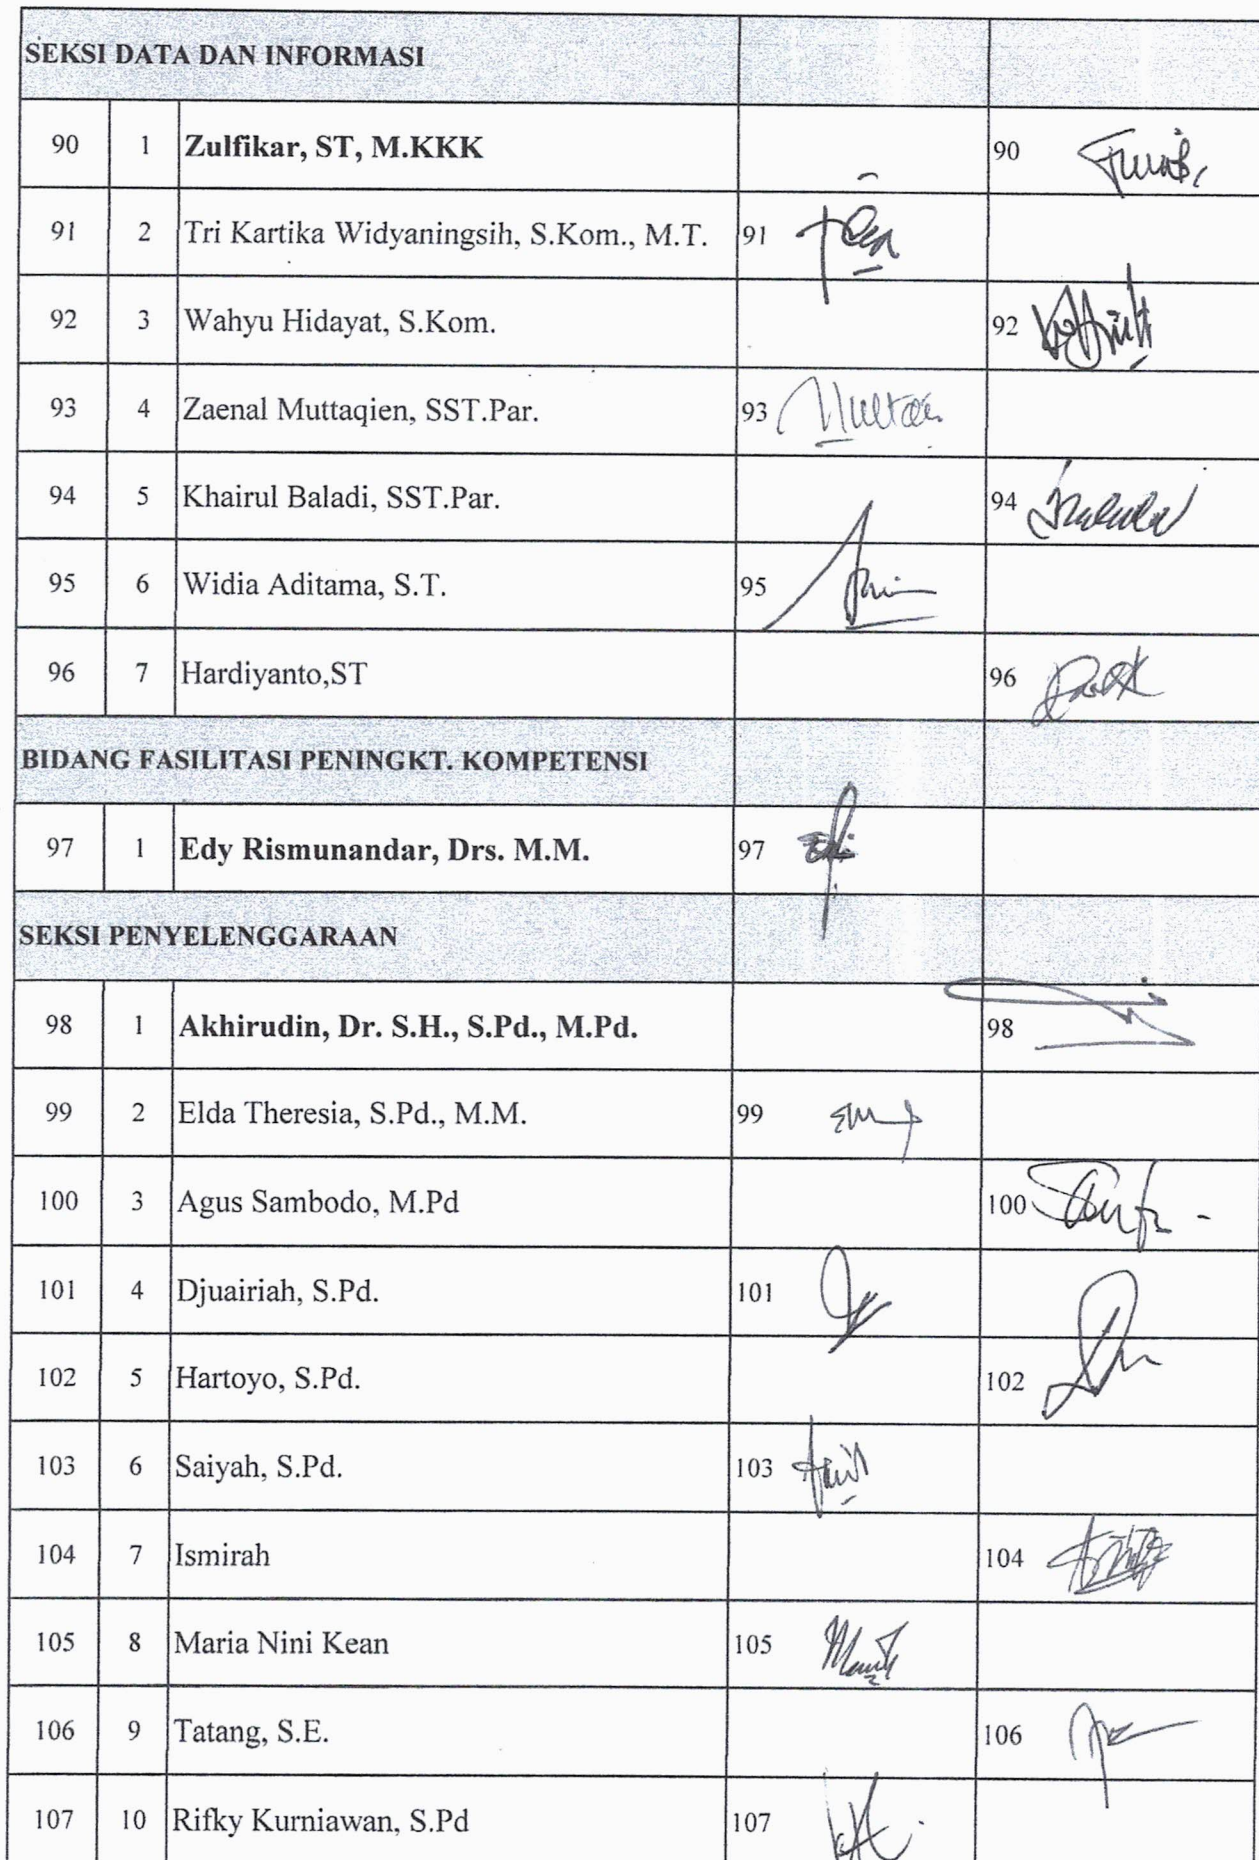 SEKSI DATA DAN INFORMASI
90 1 Zulfikar, ST, M.KKK 90
91 2 Tri Kartika Widyaningsih, S.Kom., M.T. 91
92 3 Wahyu Hidayat, S.Kom. 92
93 4 Zaenal Muttaqien, SST.Par. 93
94 5 Khairul Baladi, SST.Par. 94
95 6 Widia Aditama, S.T. 95
96 7 Hardiyanto,ST 96
BIDANG FASILITASI PENINGKT. KOMPETENSI
97 1 Edy Rismunandar, Drs. M.M. 97
SEKSI PENYELENGGARAAN
98 1 Akhirudin, Dr. S.H., S.Pd., M.Pd. 98
99 2 Elda Theresia, S.Pd., M.M. 99
100 3 Agus Sambodo, M.Pd 100
101 4 Djuairiah, S.Pd. 101
102 5 Hartoyo, S.Pd. 102
103 6 Saiyah, S.Pd. 103
104 7 Ismirah 104
105 8 Maria Nini Kean 105
106 9 Tatang, S.E. 106
107 10 Rifky Kurniawan, S.Pd 107